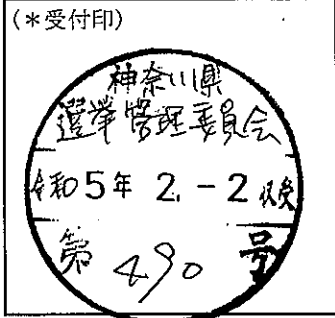 (＊受付印)
神奈川県
選挙管理委員会
令和5年 2.-2 収受
第490号